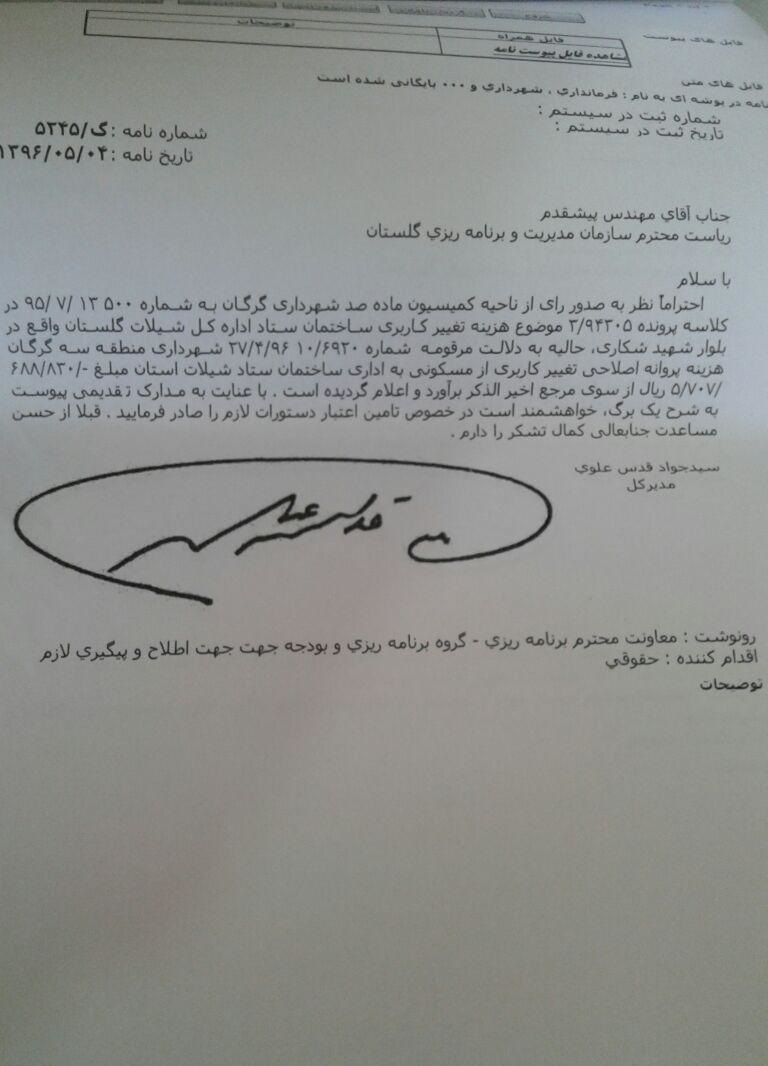 فایل های پیوست
فایل همراه
توضیحات
مشاهده فایل پیوست نامه
فایل های متنی
نامه در پوشه ای به نام : فرمانداری ، شهرداری و ۰۰۰ بایگانی شده است
شماره ثبت در سیستم :
تاریخ ثبت در سیستم :
شماره نامه :گ/۵۲۴۵
تاریخ نامه :۱۳۹۶/۰۵/۰۴
جناب آقاي مهندس پیشقدم
ریاست محترم سازمان مدیریت و برنامه ریزي گلستان
با سلام
احتراماً نظر به صدور رای از ناحیه کمیسیون ماده صد شهرداری گرگان به شماره ۵۰۰ ۱۳ /۷ /۹۵ در
کلاسه پرونده ۳/۹۴۳۰۵ موضوع هزینه تغییر کاربری ساختمان ستاد اداره کل شیلات گلستان واقع در
بلوار شهید شکاری، حالیه به دلالت مرقومه شماره ۱۰/۶۹۲۰ ۲۷/۴/۹۶ شهرداری منطقه سه گرگان
هزینه پروانه اصلاحی تغییر کاربری از مسکونی به اداری ساختمان ستاد شیلات استان مبلغ -/۶۸۸/۸۳۰
/۵/۷۰۷ ریال از سوی مرجع اخیر الذکر برآورد و اعلام گردیده است . با عنایت به مدارک تقدیمی پیوست
به شرح یک برگ، خواهشمند است در خصوص تامین اعتبار دستورات لازم را صادر فرمایید . قبلا از حسن
مساعدت جنابعالی کمال تشکر را دارم .
سیدجواد قدس علوي
مدیرکل
رونوشت : معاونت محترم برنامه ریزي - گروه برنامه ریزي و بودجه جهت جهت اطلاح و پیگیري لازم
اقدام کننده : حقوقي
توضیحات